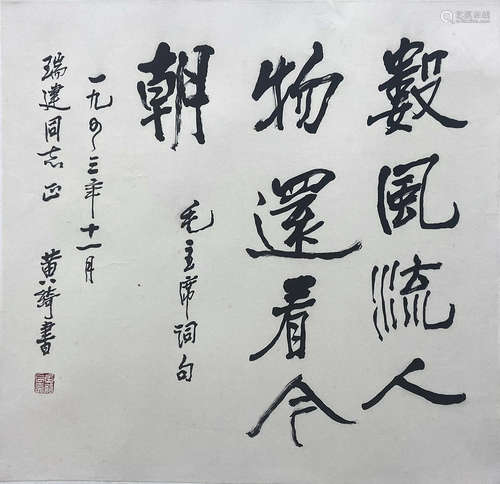 數風流人
物還看今
朝
毛主席詞句
一九三年十一月
瑞建同志正
黄綺書